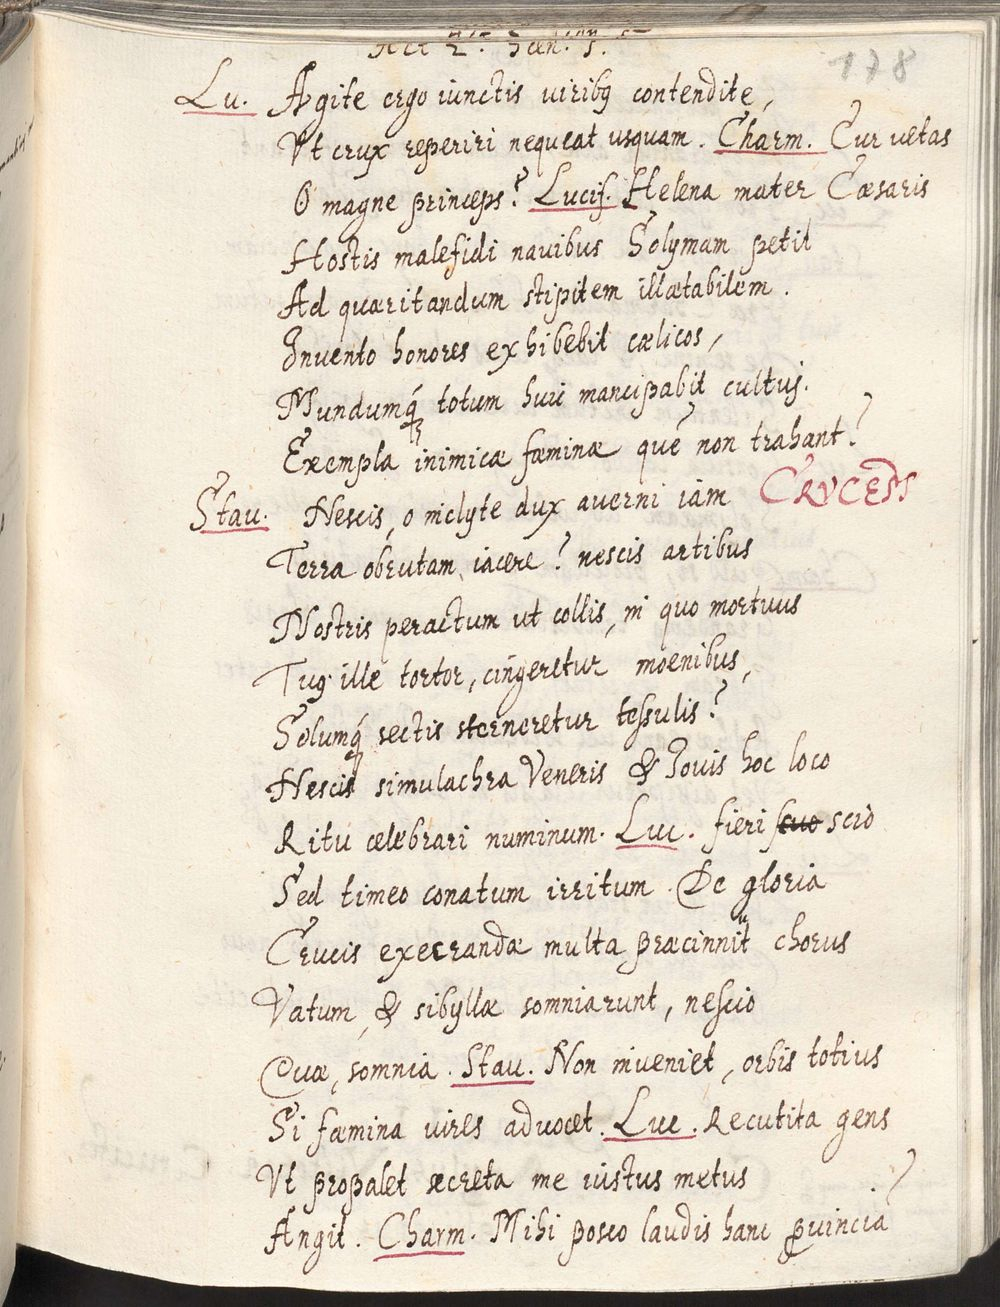 Act 2. Scen. 1.
178
Lu. Agite ergo iunctis uiribq contendite,
Vt crux reperiri nequeat usquam. Charm. Cur uetas
O magne princeps? Lucif. Helena mater Cæsaris
Hostis malefidi nauibus Solymam petit
Ad quæritandum stipitem illætabilem.
Inuento honores exhibebit cælicos,
Mundumq́ totum huic mancipabit cultuj.
Exempla inimicæ fæminæ què non trahant?
Stau. Nescis, o inclyte dux auerni iàm CRVCEM
Terra obrutam iacere? nescis artibus
Nostris peractum ut collis, in quo mortuus
Tuq ille tortor, cingeretur moenibus,
Solumq́ sectis sterneretur teſsulis?
Nescis simulachra Veneris & Iouis hoc loco
Ritu celebrari numinum. Luc. fieri scio
Sed timeo conatum irritum. De gloria
Crucis execrandæ multa præcinnit chorus
Vatum, & sibyllæ somniarunt, neſcio
Quæ somnia. Stau. Non inueniet, orbis totius
Si fæmina uires aduocet. Luc. Recutita gens
Vt propalet secreta me iustus metus
Angit. Charm. Mihi posco laudis hanc puincia